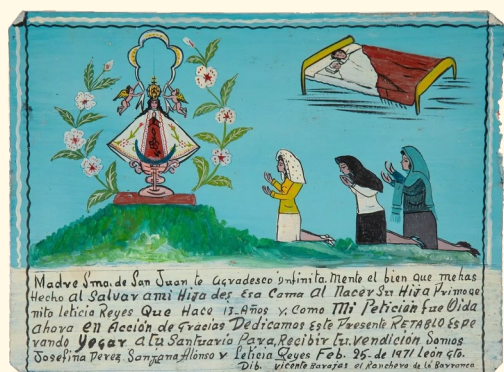 Madre Sma. de San Juan te agradesco infinita mente el bien que mehas
Hecho al Salvar ami Hija des Esa Cama al Nacer Su Hija Primoge
nito Leticia Reyes, Que Hace 13 Años y. Como Mi Petición fue Oida
ahora en Acción de Gracias Dedicamos Este Presente RETABLO ESPE
rando Yegar a tu Santuario Para, Recibir tu. vendición. Somos
Josefina Perez. Sanjana Alonso y Leticia Reyes Feb. 25. de 1971 León gto.
Dib. Vicente Barajas el Ranchero de la Barranca